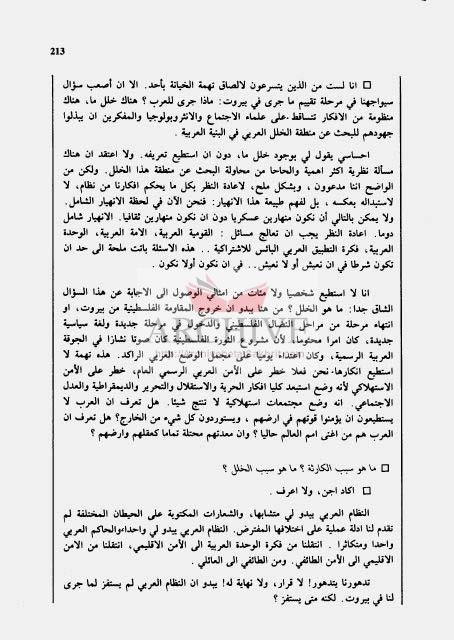 213
□ انا لست من الذين يتسرعون لالصاق تهمة الخيانة بأحد. الا ان أصعب سؤال
سيواجهنا في مرحلة تقييم ما جرى في بيروت: ماذا جرى للعرب؟ هناك خلل ما، هناك
منظومة من الافكار تتساقط على علماء الاجتماع والانثروبولوجيا والمفكرين ان يبذلوا
جهودهم للبحث عن منطقة الخلل العربي في البنية العربية.
احساسي يقول لي بوجود خلل ما، دون ان استطيع تعريفه. ولا اعتقد ان هناك
مسألة نظرية اكثر اهمية والحاحا من محاولة البحث عن منطقة هذا الخلل. ولكن من
الواضح اننا مدعوون، وبشكل ملح، لاعادة النظر بكل ما يحكم افكارنا من نظام، لا
لاستبداله بعكسه، بل لفهم طبيعة هذا الانهيار: فنحن الآن في لحظة الانهيار الشامل.
ولا يمكن بالتالي أن نكون منهارين عسكريا دون ان نكون منهارين ثقافيا. الانهيار شامل
دوما. اعادة النظر يجب ان تعالج مسائل: القومية العربية، الامة العربية، الوحدة
العربية، فكرة التطبيق العربي البائس للاشتراكية.. هذه الاسئلة باتت ملحة الى حد ان
تكون شرطا في ان نعيش أو لا نعيش.. في ان نكون أولا نكون.
انا لا استطيع شخصيا ولا مئات من امثالي الوصول الى الاجابة عن هذا السؤال
الشاق جدا: ما هو الخلل؟ من هنا يبدو ان خروج المقاومة الفلسطينية من بيروت، او
انتهاء مرحلة من مراحل النضال الفلسطيني والدخول في مرحلة جديدة ولغة سياسية
جديدة، كان امرا محتوما، لأن مشروع الثورة الفلسطينية كان صوتا نشازا في الجوقة
العربية الرسمية، وكان اعتداء يوميا على مجمل الوضع العربي الراكد. هذه تهمة لا
استطيع انكارها. نحن فعلا خطر على الأمن العربي الرسمي العام، خطر على الأمن
الاستهلاكي لأنه وضع استبعد كليا افكار الحرية والاستقلال والتحرير والديمقراطية والعدل
الاجتماعي. انه وضع مجتمعات استهلاكية لا تنتج شيئا. هل تعرف ان العرب لا
يستطيعون ان يؤمنوا قوتهم في ارضهم، ويستوردون كل شيء من الخارج؟ هل تعرف ان
العرب هم من اغنى امم العالم حاليا؟ وان معدتهم محتلة تماما كعقلهم وارضهم؟
□ ما هو سبب الكارثة؟ ما هو سبب الخلل؟
□ اكاد اجن، ولا اعرف.
النظام العربي يبدو لي متشابها، والشعارات المكتوبة على الحيطان المختلفة لم
تقدم لنا ادلة عملية على اختلافها المفترض. النظام العربي يبدو لي واحداء والحاكم العربي
واحدا ومتكاثرا. انتقلنا من فكرة الوحدة العربية الى الأمن الاقليمي، انتقلنا من الامن
الاقليمي الى الأمن الطائفي. ومن الطائفي الى العائلي.
تدهورنا يتدهور! لا قرار، ولا نهاية له! يبدو ان النظام العربي لم يستفز لما جرى
لنا في بيروت. لكنه متى يستفز؟
ARCHIVE